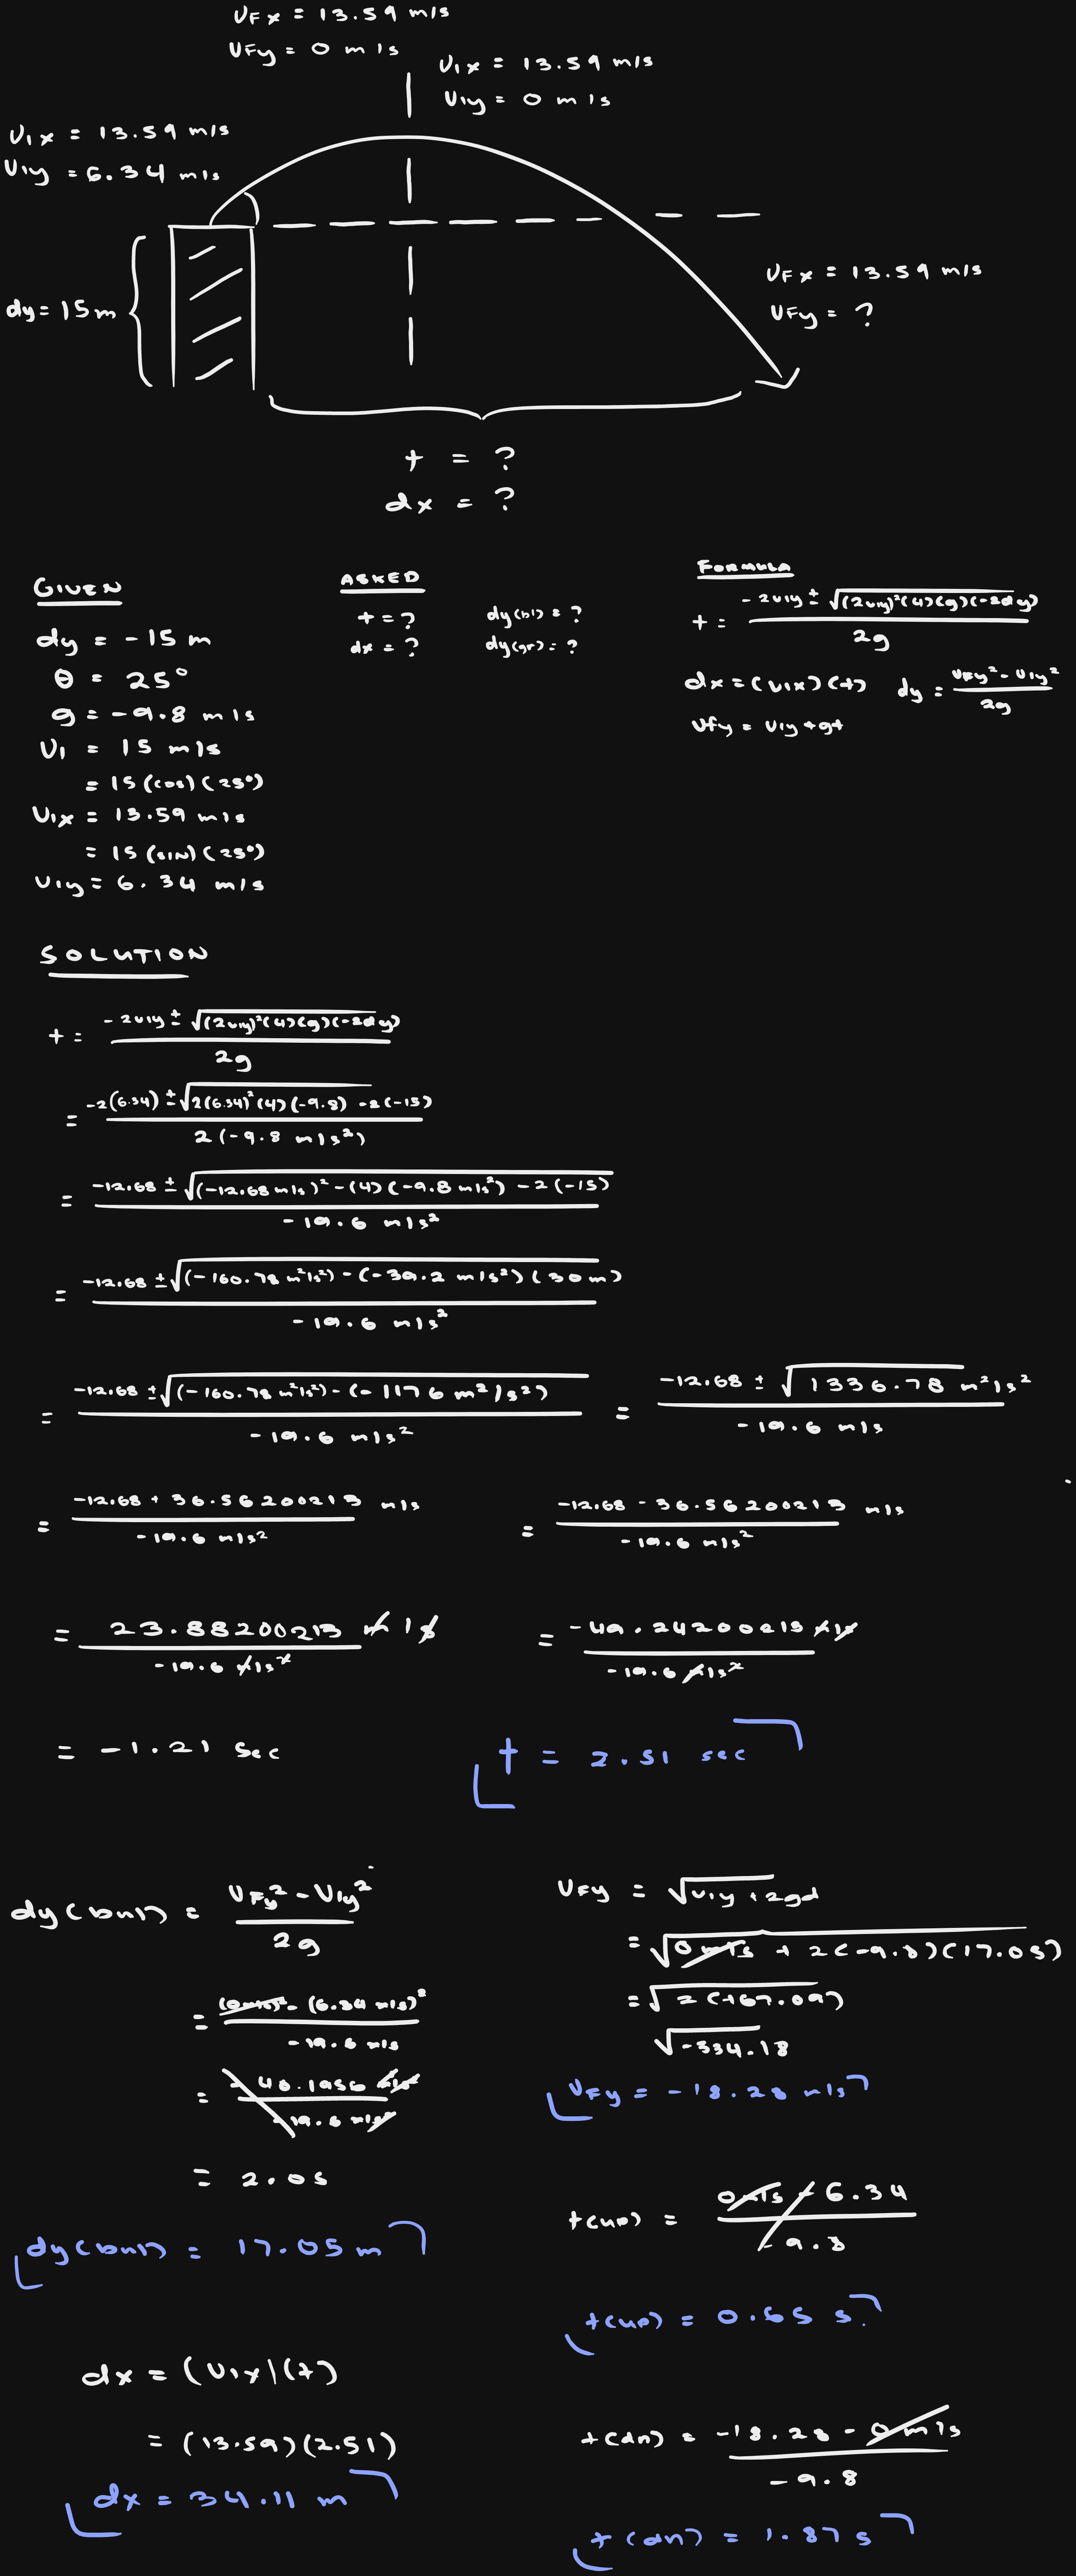 VFx = 13.59 m/s
VFy = 0 m/s
Vix = 13.59 m/s
Viy = 0 m/s
Vix = 13.59 m/s
Viy = 6.34 m/s
dy = 15 m
VFx = 13.59 m/s
VFy = ?
t = ?
dx = ?
GIVEN
dy = -15 m
θ = 25°
g = -9.8 m/s
Vi = 15 m/s
= 15 (cos) (25°)
Vix = 13.59 m/s
= 15 (sin) (25°)
Viy = 6.34 m/s
ASKED
t = ?
dx = ?
dy(bl) = ?
dy(gr) = ?
FORMULA
t = -2viy ± √(2viy)²(4)(g)(-2dy) / 2g
dx = (vix)(t) dy = vfy² - viy² / 2g
Vfy = viy + gt
SOLUTION
t = -2viy ± √(2viy)²(4)(g)(-2dy) / 2g
= -2(6.34) ± √2(6.34)²(4)(-9.8) -2(-15) / 2(-9.8 m/s²)
= -12.68 ± √(-12.68 m/s)² - (4)(-9.8 m/s²) - 2(-15) / -19.6 m/s²
= -12.68 ± √(-160.78 m²/s²) - (-39.2 m/s²)(30m) / -19.6 m/s²
= -12.68 ± √(-160.78 m²/s²) - (-1176 m²/s²) / -19.6 m/s² = -12.68 ± √1336.78 m²/s² / -19.6 m/s
= -12.68 + 36.56200213 m/s / -19.6 m/s² = -12.68 - 36.56200213 m/s / -19.6 m/s²
= 23.88200213 m/s / -19.6 m/s² = -49.24200213 m/s / -19.6 m/s²
= -1.21 sec t = 2.51 sec
dy(bnt) = VFy² - Viy² / 2g
= (0m/s)² - (6.34 m/s)² / -19.6 m/s
= -40.1956 m/s² / -19.6 m/s²
= 2.05
dy(bnt) = 17.05 m
dx = (vix)(t)
= (13.59)(2.51)
dx = 34.11 m
VFy = √viy + 2gd
= √0m/s + 2(-9.8)(17.05)
= √2(-167.09)
√-334.18
VFy = -18.28 m/s
t(up) = 0m/s - 6.34 / -9.8
t(up) = 0.65 s
t(dn) = -18.28 - 0m/s / -9.8
t(dn) = 1.87 s